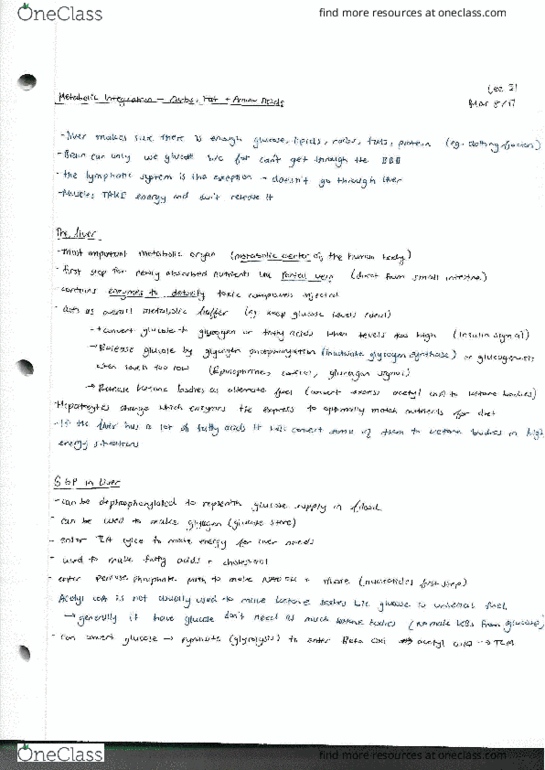 OneClass
find more resources at oneclass.com
Lec 21
Metabolic Integration – Carbs, Fat + Amino Acids
Mar 8/17
- liver makes sure there is enough glucose, lipids, carbs, fats, protein (eg. clotting factors)
- Brain can only use glucose b/c fat can't get through the BBB
- the lymphatic system is the exception → doesn't go through liver
- Muscles TAKE energy and don't release it
The liver
- most important metabolic organ (metabolic center of the human body)
- first stop for newly absorbed nutrients via portal vein (direct from small intestine)
- contains enzymes to detoxify toxic compounds ingested
- acts as overall metabolic buffer (eg keep glucose levels
→ convert glucose → glycogen or fatty acids when levels too high (insulin signal)
→ Release glucose by glycogen (inactivate glycogen synthase) or gluconeogenesis
when levels too low (Epinephrine, glucagon signal)
→ Release ketone bodies as alternate fuel (convert excess acetyl coA to ketone bodies)
- Hepatocytes change which enzymes the express to optimally match nutrients for diet
- If the liver has a lot of fatty acids it will convert some of them to ketone bodies in high
energy situations
G6P in Liver
- can be dephosphorylated to replenish glucose supply in blood
- can be used to make glycogen (glucose store)
- enter TCA cycle to make energy for liver needs
- used to make fatty acids + cholesterol
- enter pentose phosphate path to make NADPH + ribose (nucleotides first step)
Acetyl coA is not usually used to make ketone bodies b/c glucose is universal fuel
→ generally if have glucose don't need as much ketone bodies (no make KBs from glucose)
- can convert glucose → pyruvate (glycolysis) to enter acetyl coA →
OneClass
find more resources at oneclass.com